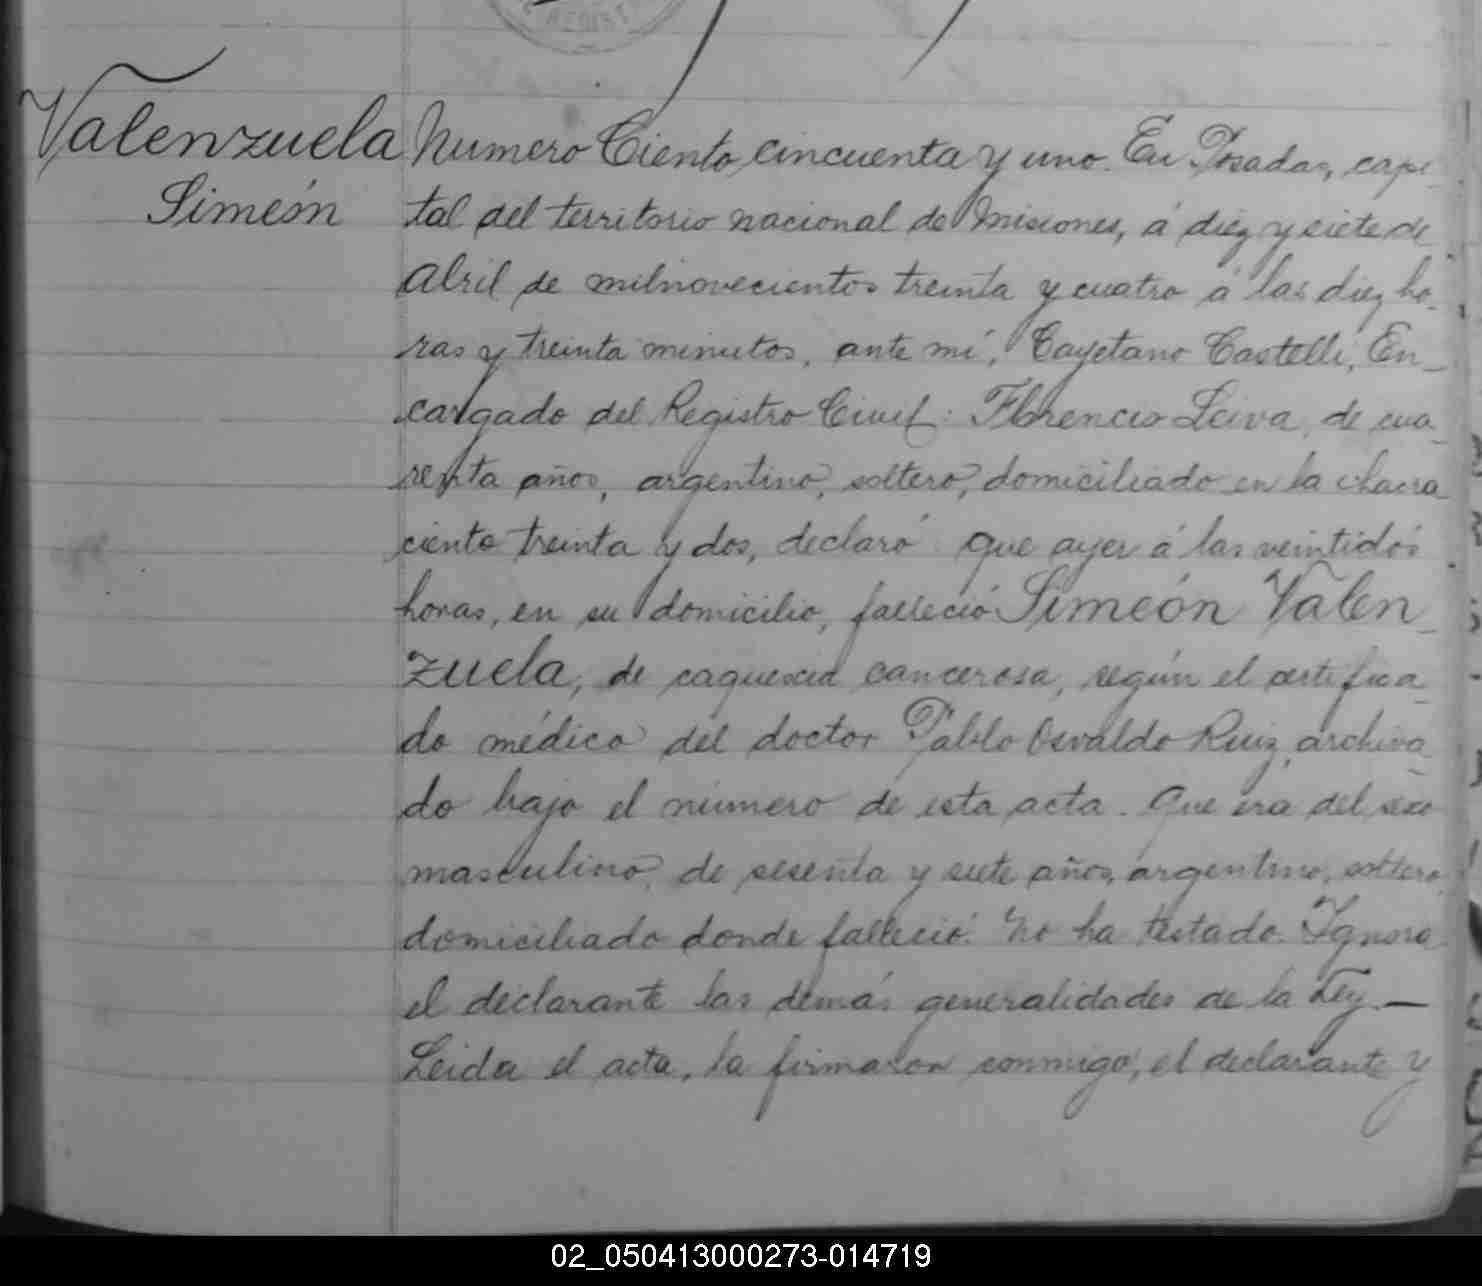 Valenzuela
Simeón
Numero Ciento cincuenta y uno. En Posadas, capi-
tal del territorio nacional de Misiones, á diez y siete de
Abril de milnovecientos treinta y cuatro á las diez ho-
ras y treinta minutos, ante mí, Cayetano Castelli, En-
cargado del Registro Civil: Florencio Leiva, de cua-
renta años, argentino, soltero, domiciliado en la chacra
ciento treinta y dos, declaró: que ayer á las veintidós
horas, en su domicilio, falleció Simeón Valen-
zuela, de caquexia cancerosa, según el certifica-
do médico del doctor Pablo Osvaldo Ruiz, archiva-
do bajo el número de esta acta. Que era del sexo
masculino, de sesenta y siete años, argentino, soltero,
domiciliado donde falleció. No ha testado. Ignora
el declarante las demás generalidades de la Ley. —
Leida el acta, la firmaron conmigo, el declarante y
02_050413000273-014719